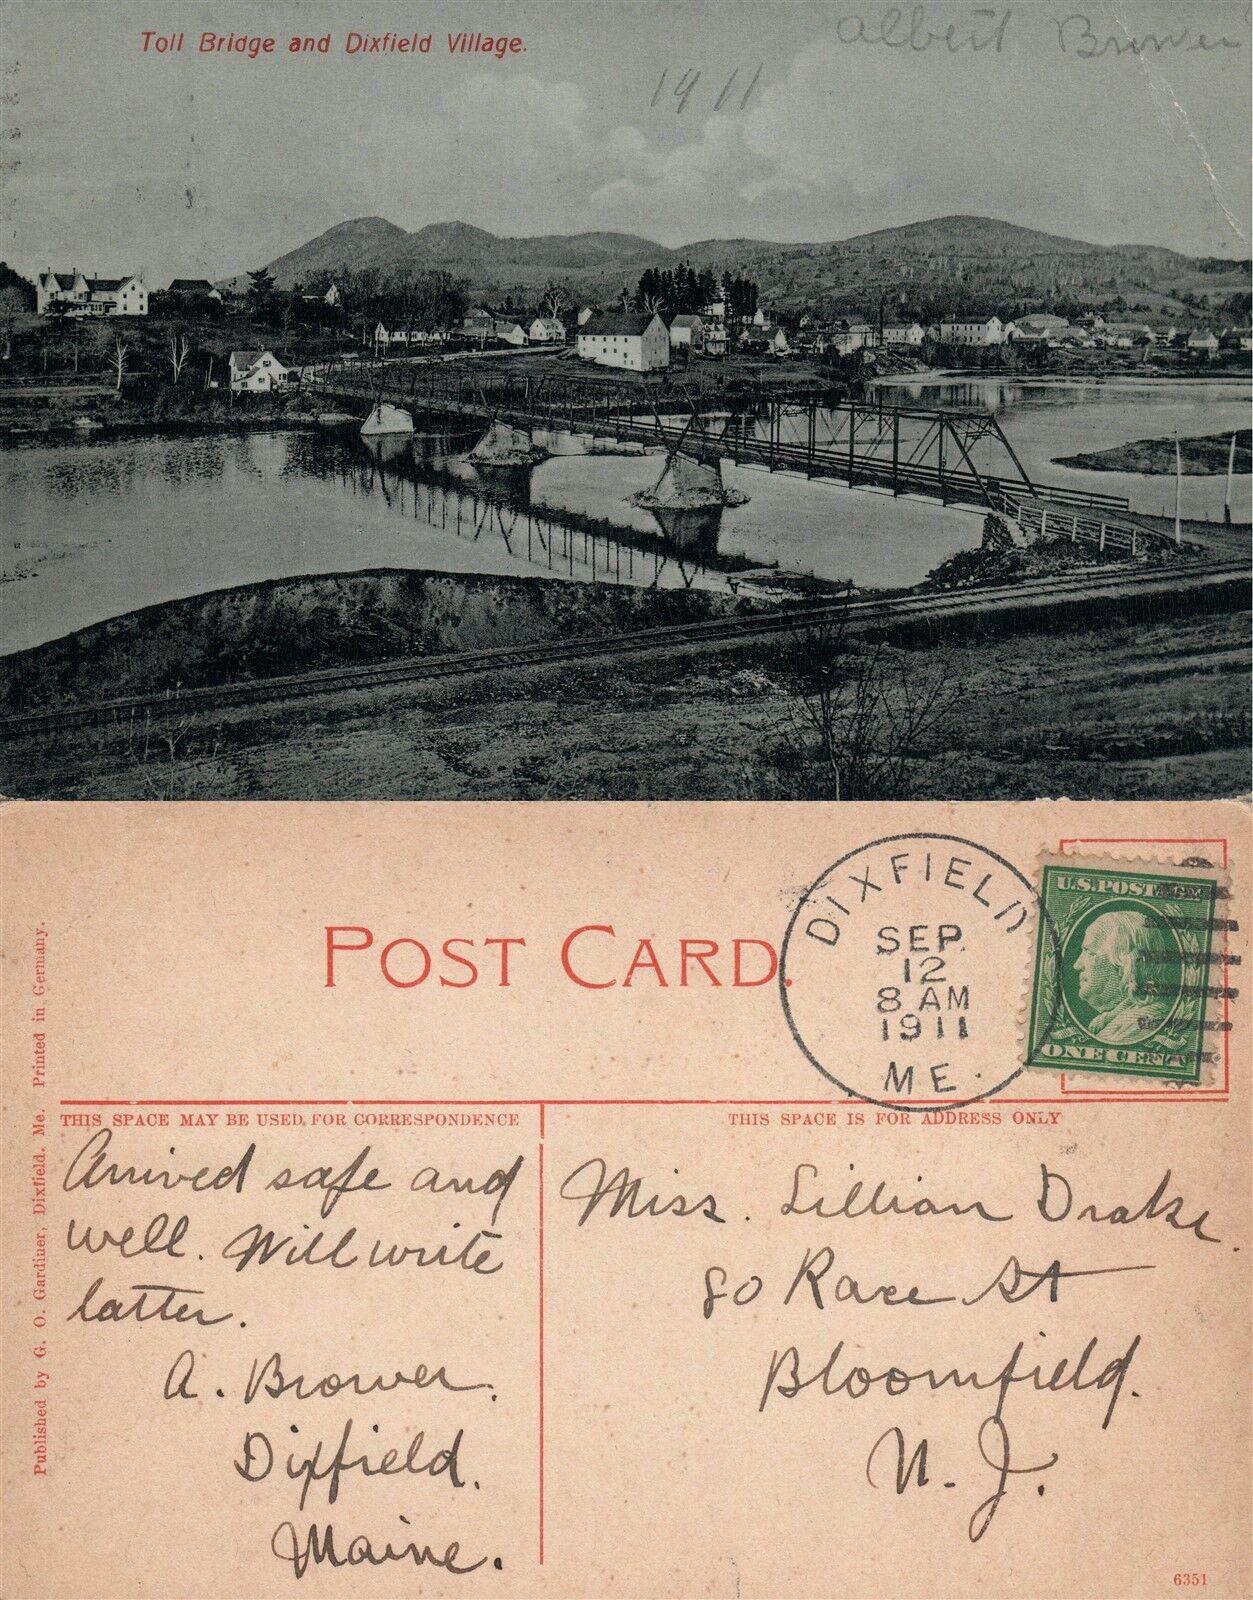 Toll Bridge and Dixfield Village.
Albert Brower
1911
POST CARD.
DIXFIELD
SEP.
12
8 AM
1911
ME.
U.S. POSTAGE
ONE CENT
Published by G. O. Gardiner, Dixfield, Me. Printed in Germany.
THIS SPACE MAY BE USED FOR CORRESPONDENCE
Arrived safe and
well. Will write
latter.
A. Brower.
Dixfield.
Maine.
THIS SPACE IS FOR ADDRESS ONLY
Miss. Lillian Drake.
80 Race St
Bloomfield.
N. J.
6351